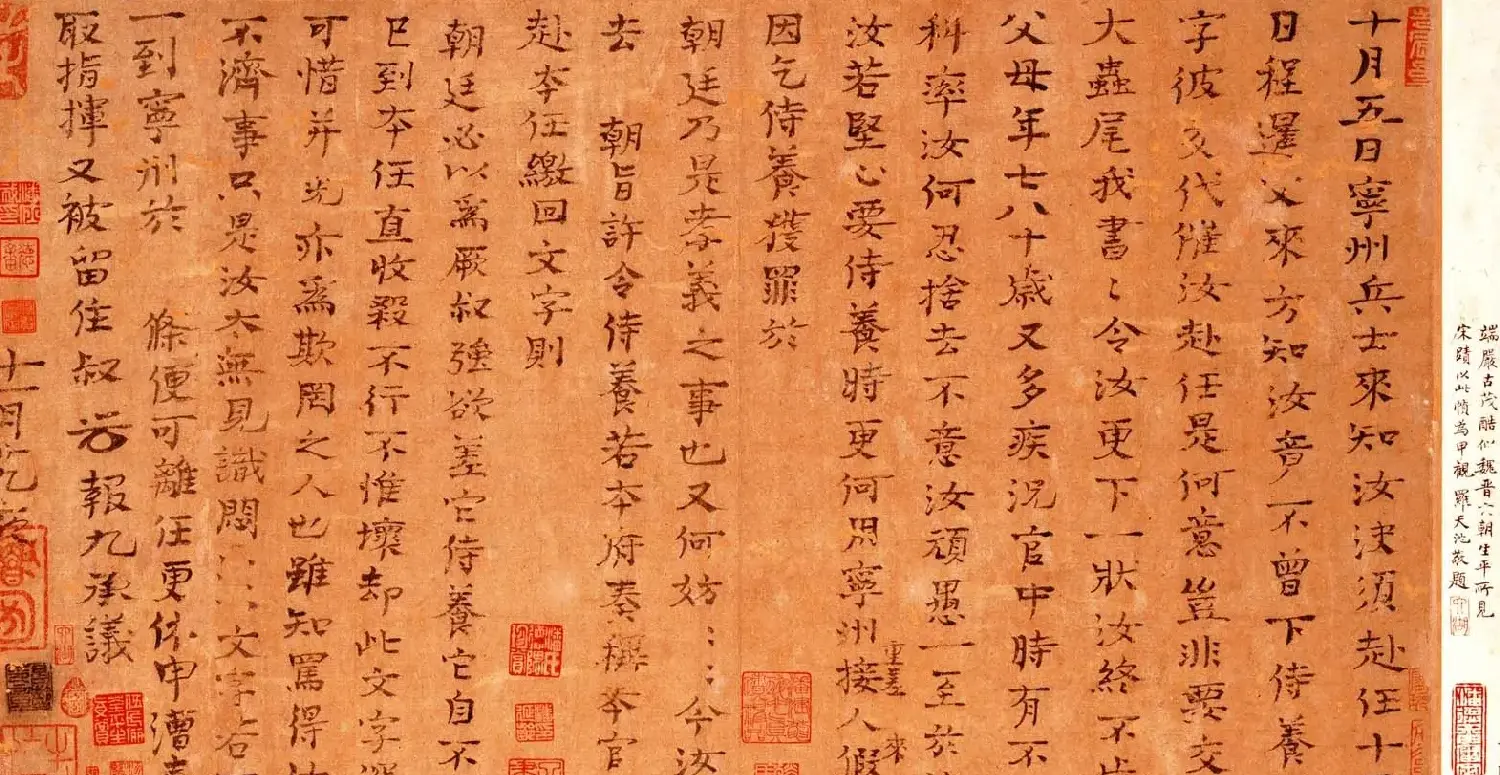 端嚴古茂酷似魏晉六朝生平所見
宋蹟以此幀為甲觀 羅天池敬題
十月五日寧州兵士來知汝決須赴任十
日程暹父來方知汝竟不曾下侍養
字彼交代催汝赴任是何意豈非要交
大蟲尾我書〻令汝更下一狀汝終不肯
父母年七八十歲又多疾況官中時有不
科率汝何忍捨去不意汝頑愚一至於
汝若堅心要侍養時更何用寧州接人重差來假
因乞侍養獲罪於
朝廷乃是孝義之事也又何妨〻〻今汝
去 朝旨許令侍養若本府奏 本官
赴本任繳回文字則
朝廷必以為厥叔強欲差它侍養它自不
已到本任直收殺不行不惟壞却此文字
可惜并光亦為欺罔之人也雖知罵得汝
不濟事只是汝太無見識悶〻〻文字若
一到寧州於 條便可離任更依申漕
取指揮又被留住叔 光報九承議
十一月九